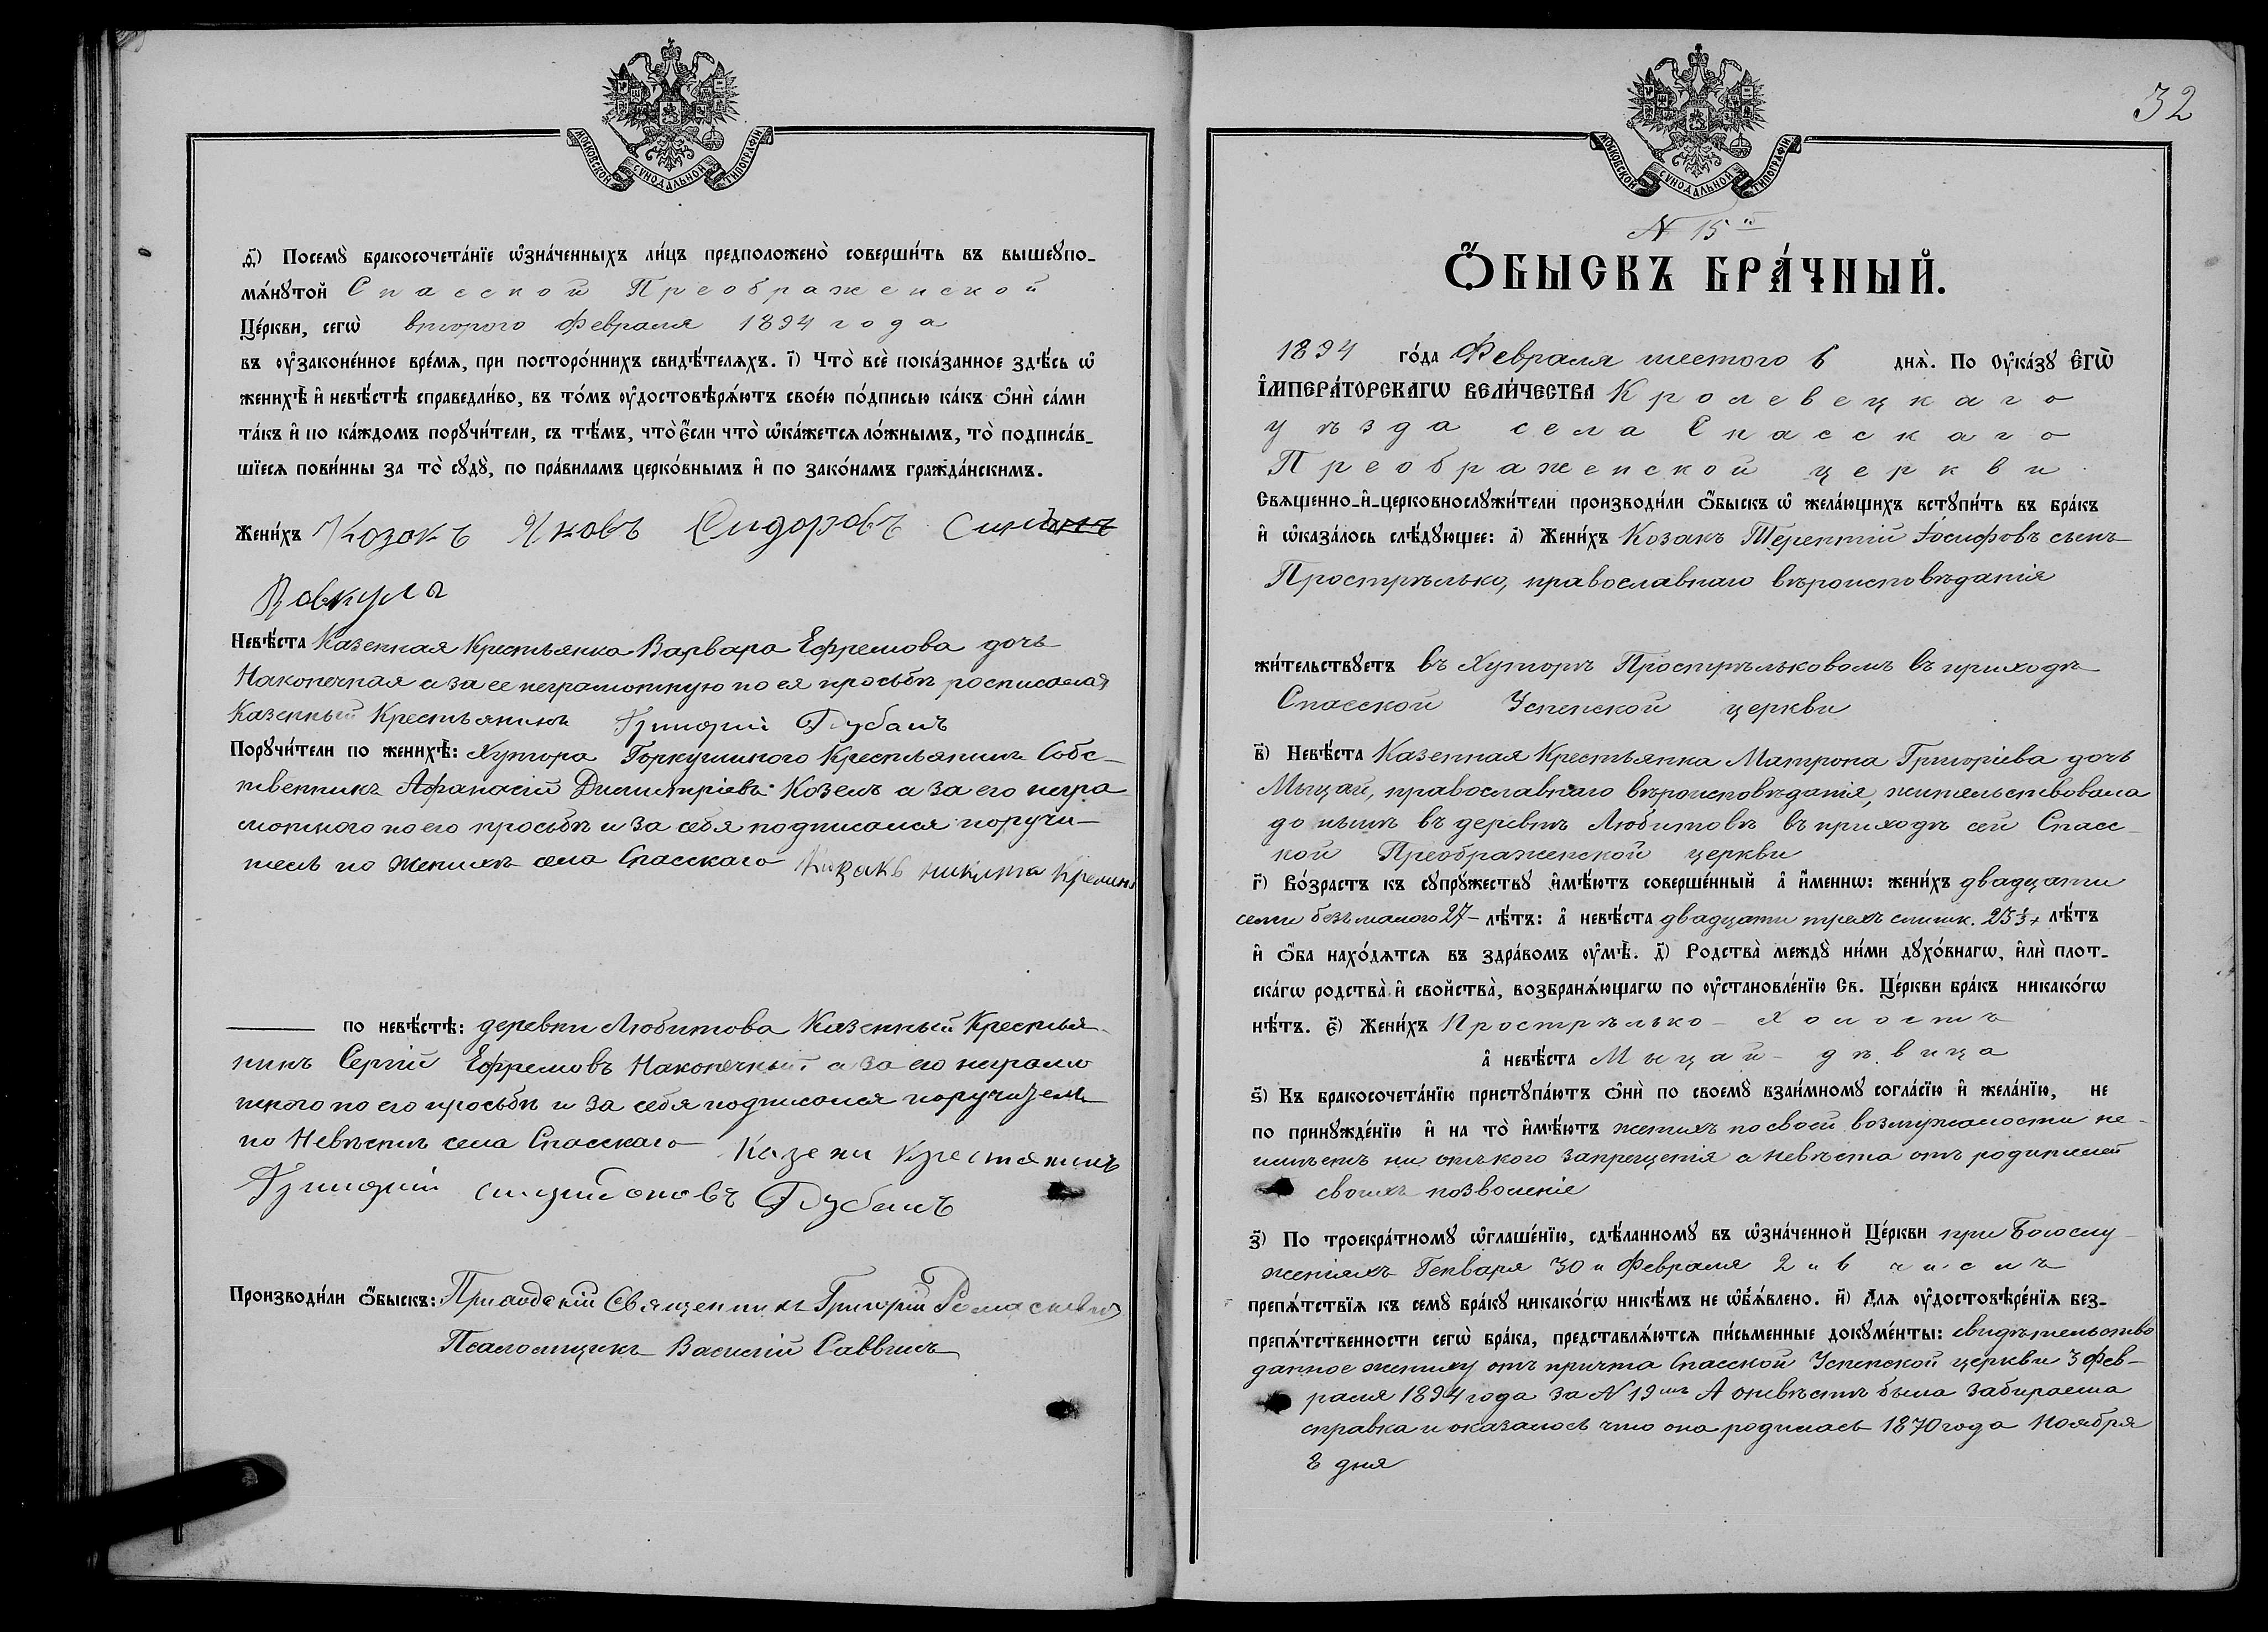 МОСКОВСКОЙ СѴНОДАЛЬНОЙ ТИПОГРАФІИ
ѳ҃) Посемꙋ̀ бракосочета́нїе ѡ҆зна́ченныхъ ли́цъ предположено̀ соверши́ть въ вышеꙋпо-
мѧ́нꙋтой Спасской Преображенской
Це́ркви, сегѡ̀ второго Февраля 1894 года
въ оу҆законе́нное вре́мѧ, при посторо́ннихъ свидѣ́телѧхъ. і҃) Что̀ всѐ пока́занное здѣ́сь ѡ҆
женихѣ̀ и҆ невѣ́стѣ справедли́во, въ то́мъ оу҆достовѣрѧ́ютъ свое́ю по́дписью ка́къ ѻ҆нѝ са́ми
та́къ и҆ по ка́ждомъ порꙋчи́тели, съ тѣ́мъ, что̀ є҆́сли что̀ ѡ҆ка́жетсѧ ло́жнымъ, то̀ подписа́в-
шїесѧ пови́нны за то̀ сꙋдꙋ̀, по пра́виламъ церко́внымъ и҆ по зако́намъ гражда́нскимъ.
Жени́хъ Козакъ Яковъ Сидоровъ
Вовкула
Невѣ́ста Казенная Крестьянка Варвара Ефремова дочь
Наконечная а за ее неграмотную по ея просьбѣ росписался
Казенный Крестьянинъ Григорий Губанъ
Порꙋчи́тели по женихѣ̀: Хутора Горкушиного Крестьянинъ Собс-
твенникъ Афанасій Димитріевъ Козелъ а за его негра-
мотного по его просьбѣ и за себя подписался поручи-
тель по Женихѣ села Спасскаго Казакъ Никита
по невѣ́стѣ: деревни Любитова Казенный Крестья-
нинъ Сергій Ефремовъ Наконечный а за его неграмо
тного по его просьбѣ и за себя подписался поручитель
по Невѣстѣ села Спасскаго Казени Крестянинъ
Григорий Губанъ
Производи́ли ѻ҆́быскъ: Приходскій Священникъ Григорій
Псаломщикъ Василій Саввичъ
32
МОСКОВСКОЙ СѴНОДАЛЬНОЙ ТИПОГРАФІИ
N 15й
Ѻ҆́БЫСКЪ БРА́ЧНЫЙ.
1894 го́да Февраля шестого 6 днѧ̀. По Оу҆ка́зꙋ Є҆ГѠ̀
І҆МПЕРА́ТОРСКАГѠ ВЕЛИ́ЧЕСТВА Кролевецкаго
уѣзда села Спасскаго
Преображенской церкви
Свѧщенно-и҆-церковнослꙋжи́тели производи́ли ѻ҆́быскъ ѡ҆ жела́ющихъ встꙋпи́ть въ бра́къ
и҆ ѡ҆каза́лось слѣ́дꙋющее: а҃) Жени́хъ Козакъ Терентій Іосифовъ сынъ
Прострѣлько, православнаго вѣроисповѣданія
жи́тельствꙋетъ въ Хуторѣ Прострѣльковомъ въ приходѣ
Спасской Успенской церкви
в҃) Невѣ́ста Казенная Крестьянка Матрона Григоріева дочь
Мыцай, православнаго вѣроисповѣданія, жительствовала
до нынѣ въ деревнѣ Любитовѣ въ приходѣ сей Спасс-
кой Преображенской церкви
г҃) Во́зрастъ къ сꙋпрꙋ́жествꙋ и҆мѣ́ютъ соверше́нный а҆ и҆́меннѡ: жени́хъ двадцати
семи безъ малого 27- лѣ́тъ: а҆ невѣ́ста двадцати трехъ слишк. 23 1/4 лѣ́тъ
и҆ ѻ҆́ба нахо́дѧтсѧ въ здра́вомъ оу҆мѣ̀. д҃) Родства̀ междꙋ̀ ни́ми дꙋхо́внагѡ, и҆лѝ плот-
ска́гѡ родства̀ и҆ свойства̀, возбранѧ́ющагѡ по оу҆становле́нїю Св. Це́ркви бра́къ никако́гѡ
нѣ́тъ. є҃) Жени́хъ Прострѣлько - Холостъ
а҆ невѣ́ста Мыцай - дѣвица
ѕ҃) Къ бракосочета́нїю пристꙋпа́ютъ ѻ҆нѝ по своемꙋ̀ взаи́мномꙋ согла́сїю и҆ жела́нїю, не
по принꙋжде́нїю и҆ на то̀ и҆мѣ́ютъ женихъ по своей возмужалости не-
имѣетъ ни откого запрещенія а невѣста отъ родителей
своихъ позволеніе
з҃) По троекра́тномꙋ ѡ҆глаше́нїю, сдѣ́ланномꙋ въ ѡ҆зна́ченной Це́ркви при Богослу-
женіяхъ Генваря 30 и Февраля 2 и 6 числъ
препѧ́тствїѧ къ семꙋ̀ бра́кꙋ никако́гѡ никѣ́мъ не ѡ҆б̾ѧ́влено. и҃) Длѧ оу҆достовѣре́нїѧ без-
препѧ́тственности сегѡ̀ бра́ка, представлѧ́ютсѧ пи́сьменные докꙋме́нты: свидѣтельство
данное жениху отъ причта Спасской Успенской церкви 3 Фев-
раля 1894 года за N 19мъ А оневѣстѣ была забираема
справка и оказалось что она родилась 1870 года Ноября
8 дня